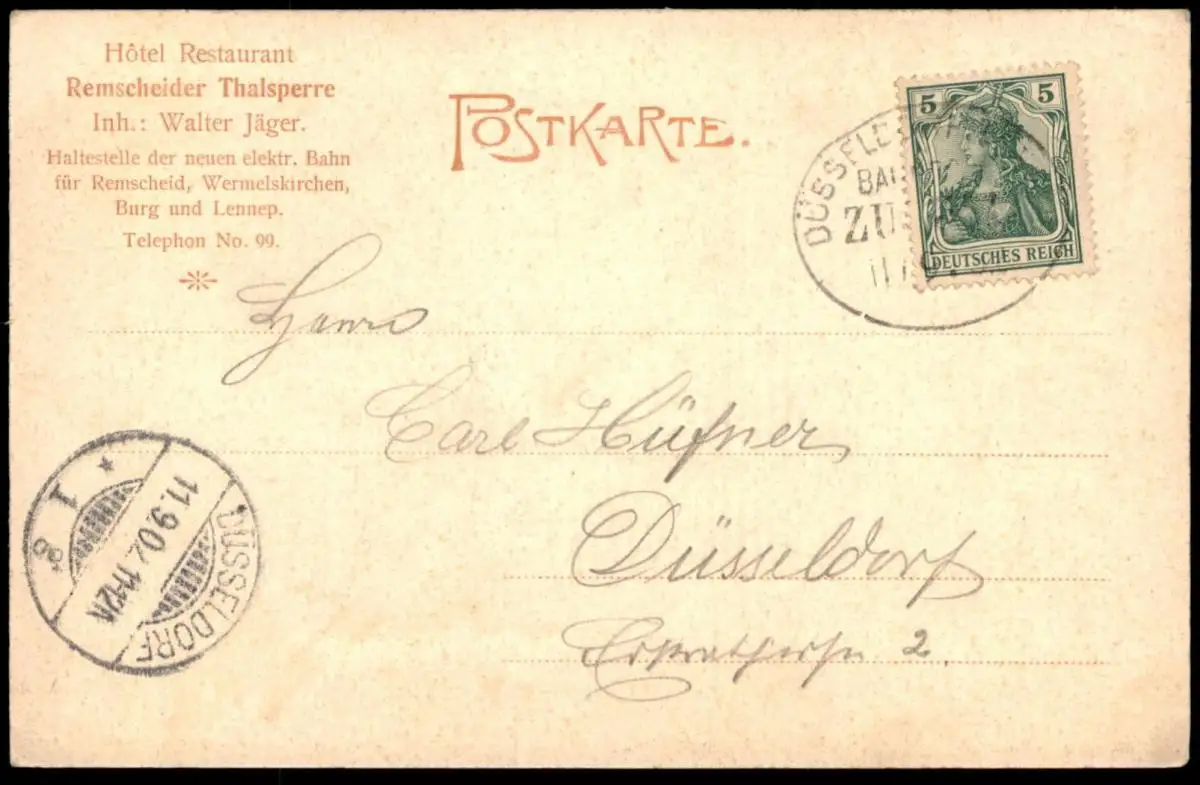 Hôtel Restaurant
Remscheider Thalsperre
Inh.: Walter Jäger.
Haltestelle der neuen elektr. Bahn
für Remscheid, Wermelskirchen,
Burg und Lennep.
Telephon No. 99.
POSTKARTE.
5 5
DEUTSCHES REICH
ZU
Herrn
Carl Hüfner
Düsseldorf
2
DÜSSELDORF
11.9.02. 11-12V.
* 1 g.